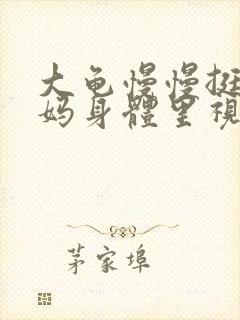 大龟慢慢挺
妈身體里視
茅家埠